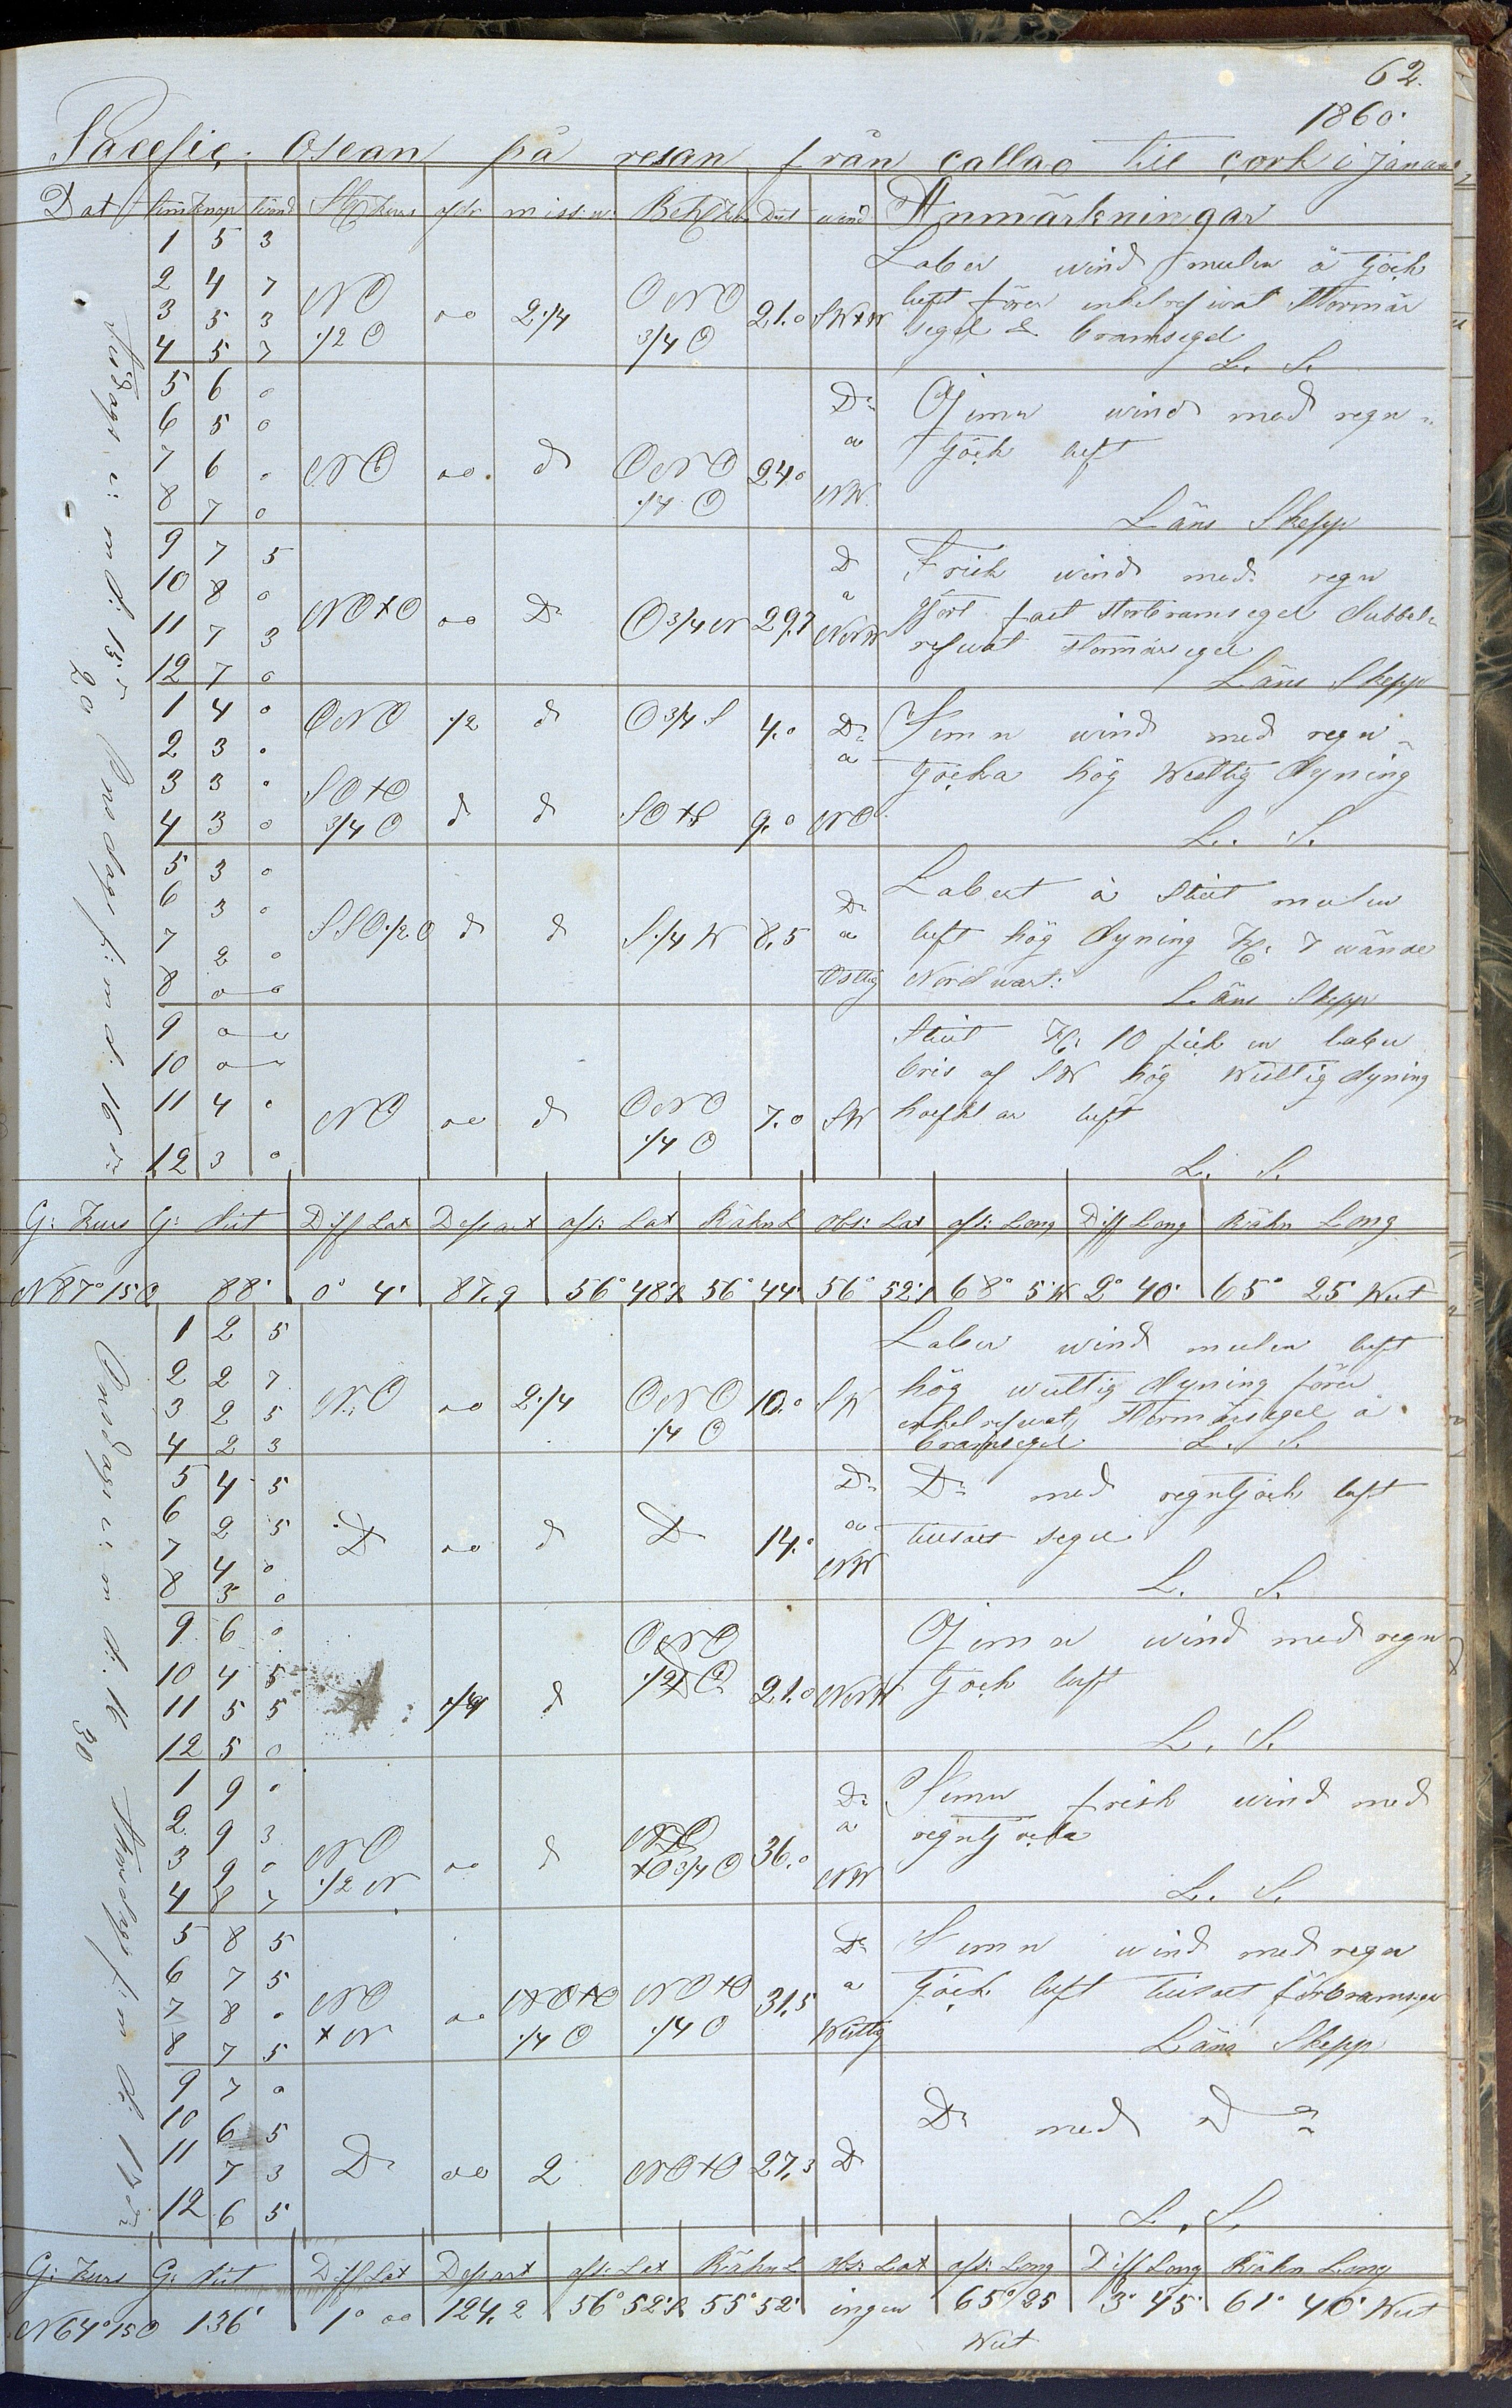 62.
1860.
Pacefic Osean på resan från Callao till Cork i Januari
Dat tim knop St Kurs afdr miss w. Beh Kurs Dist wind Anmärkningar
1 5 3 Laber wind mulen å tjock
2 4 7 NO ONO luft förer enkelrefwat Stormär
3 5 3 1/2 O 00 2 1/4 3/4 O 21.0 SWxW segel & bramsegel
4 5 7 L. S.
5 6 0 Do Gjemn wind med regn
6 5 0 a tjock luft
7 6 0 NO 00 d ONO 24.0
8 7 0 1/4 O NW Läns Skepp
9 7 5 D Frisk wind med regn
10 8 0 a gjort fast Storbramsegel dubbel
11 7 3 NOxO 00 Do O 3/4 N 29.7 NNW refwat Stormärsegel
12 7 0 Läns Skepp
Tisdags e: m d: 15
20 Onsdags f: m d: 16
1 4 0 ONO 1/2 d O 3/4 S 4.0 Do Jemn wind med regn
2 3 0 a tjocka hög Westlig dyning
3 3 0 SOxO
4 3 0 3/4 O d d SOxS 9.0 NO L. S.
5 3 0 Labert å Stilt mulen
6 3 0 Do
7 2 0 SSO 1/2 O d d S 1/4 W 8.5 a luft hög dyning Kl. 7 wände
8 0 0 Ostlig Nordwart: Läns Skepp
9 0 Stilt Kl: 10 fick en laber
10 0 bris af SW hög Westlig dyning
11 4 0 NO 00 d ONO 7.0 SW luft
12 3 0 1/4 O L. S.
G: Kurs G: dist Diff Lat Depart afs: Lat Räkn L obs: Lat afs: Long Diff Long Räkn Long
N 87° 15 O 88' 0° 4' 87.9 56° 48' S 56° 44' 56° 52' S 68° 5' W 2° 40' 65° 25 West
1 2 5 Laber wind mulen luft
2 2 7 hög westlig dyning förer
3 2 5 NO 00 2 1/4 ONO 10.0 SW enkelrefwat Stormärsegel å
4 2 3 1/4 O bramsegel L. S.
5 4 5 Do Do med regntjock luft
6 2 5 a tillsatt segel
7 4 0 D 00 d D 14.0
8 3 0 NW L. S.
9 6 0 ONO Gjemn wind med regn
10 4 5 1/2 O 21.0 NNW tjock luft
11 5 5 1/4 d
12 5 0 L. S.
Onsdags e: m d: 16
30 Thorsdags f: m d: 17
1 9 0 Do Jemn frisk wind med
2 9 3 a regntjocka
3 9 0 NO 00 d xO 3/4 O 36.0
4 8 7 1/2 N NW L. S.
5 8 5 Do Jemn wind med regn
6 7 5 a tjock luft tillsatt förbramsegel
7 8 0 NO 00 NOxO NOxO 31.5
8 7 5 x N 1/4 O 1/4 O Westlig Läns Skepp
9 7 0 Do med do
10 6 5
11 7 3 Do 00 2 NOxO 27.3 D
12 6 5 L. S.
G: Kurs G: dist Diff Lat Depart afs: Lat Räkn L obs: Lat afs: Long Diff Long Räkn Long
N 64° 15 O 136' 1° 00 124.2 56° 52' S 55° 52' ingen 65° 25 3° 45' 61° 40' West
West